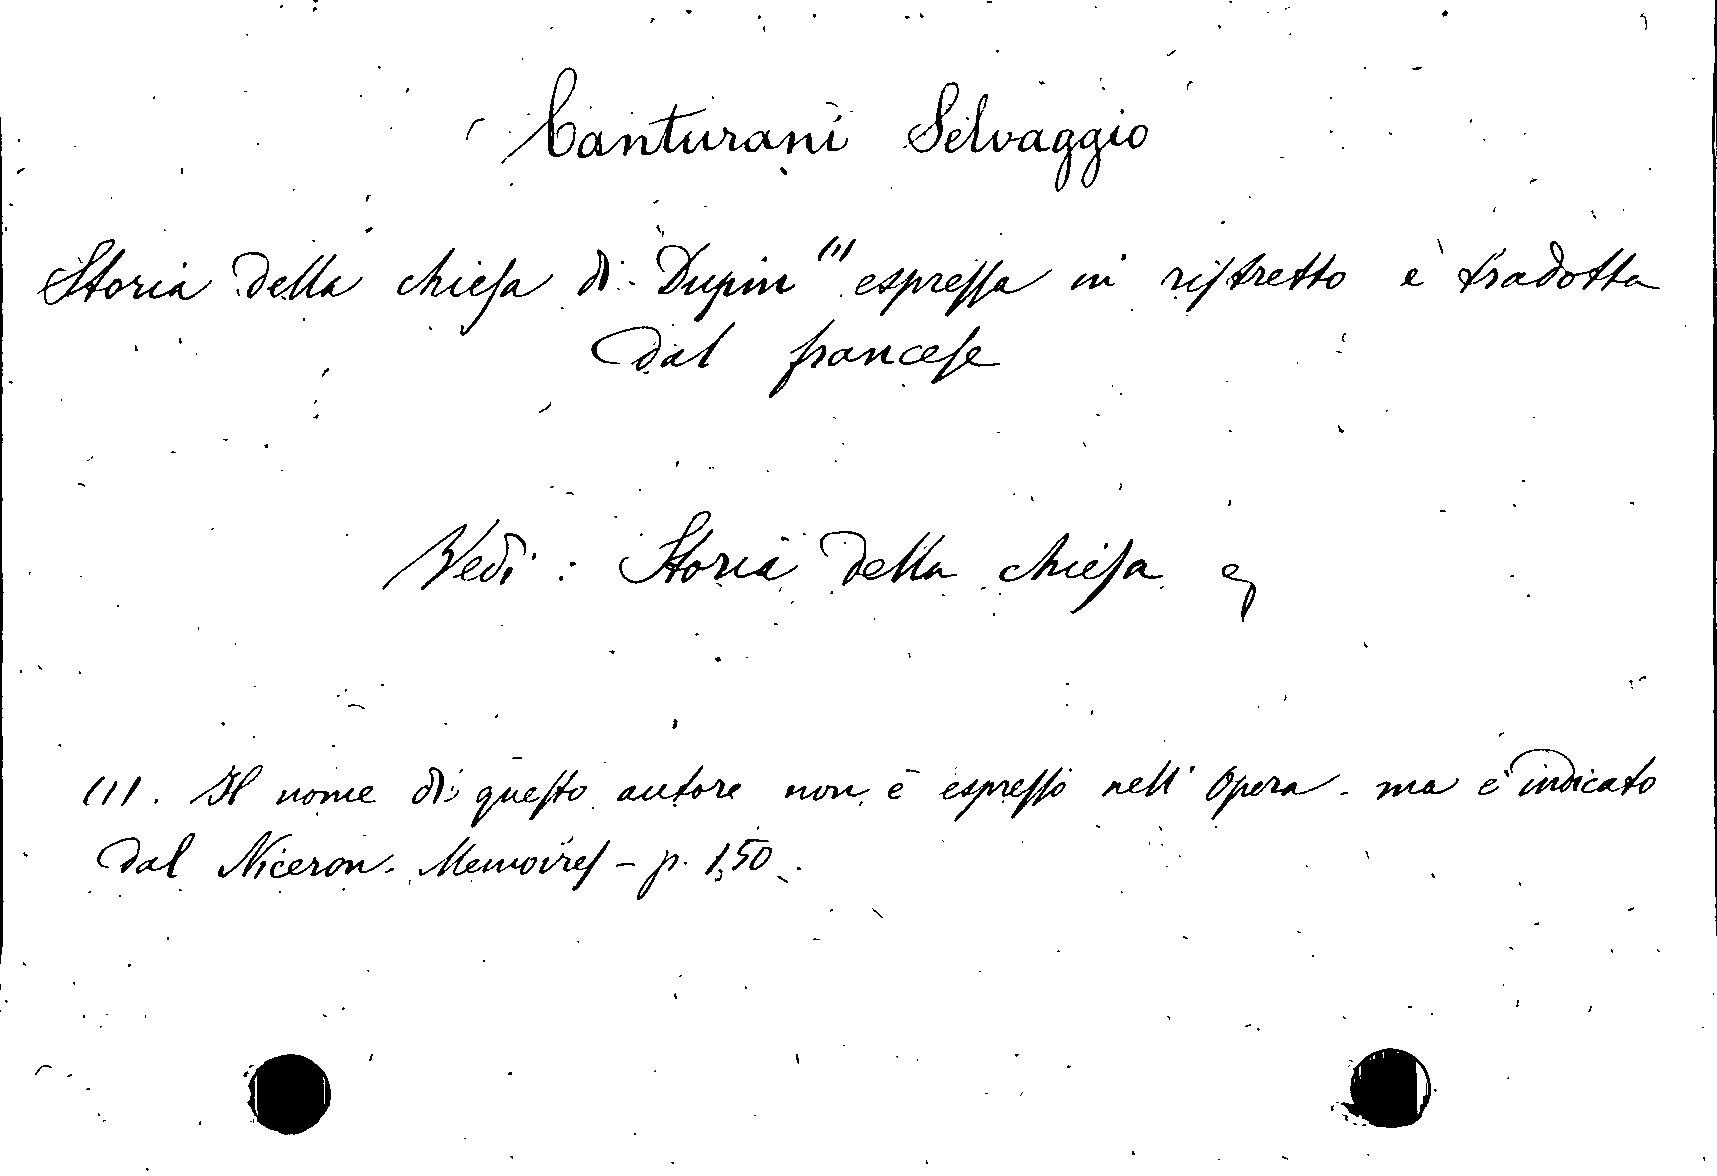 Canturani Selvaggio
Storia della chiesa di Dupin (1) espressa in ristretto e tradotta
dal francese
Vedi: Storia della chiesa
(1). Il nome di questo autore non è espresso nell' Opera - ma è indicato
dal Niceron. Memoires - p. 1,50.